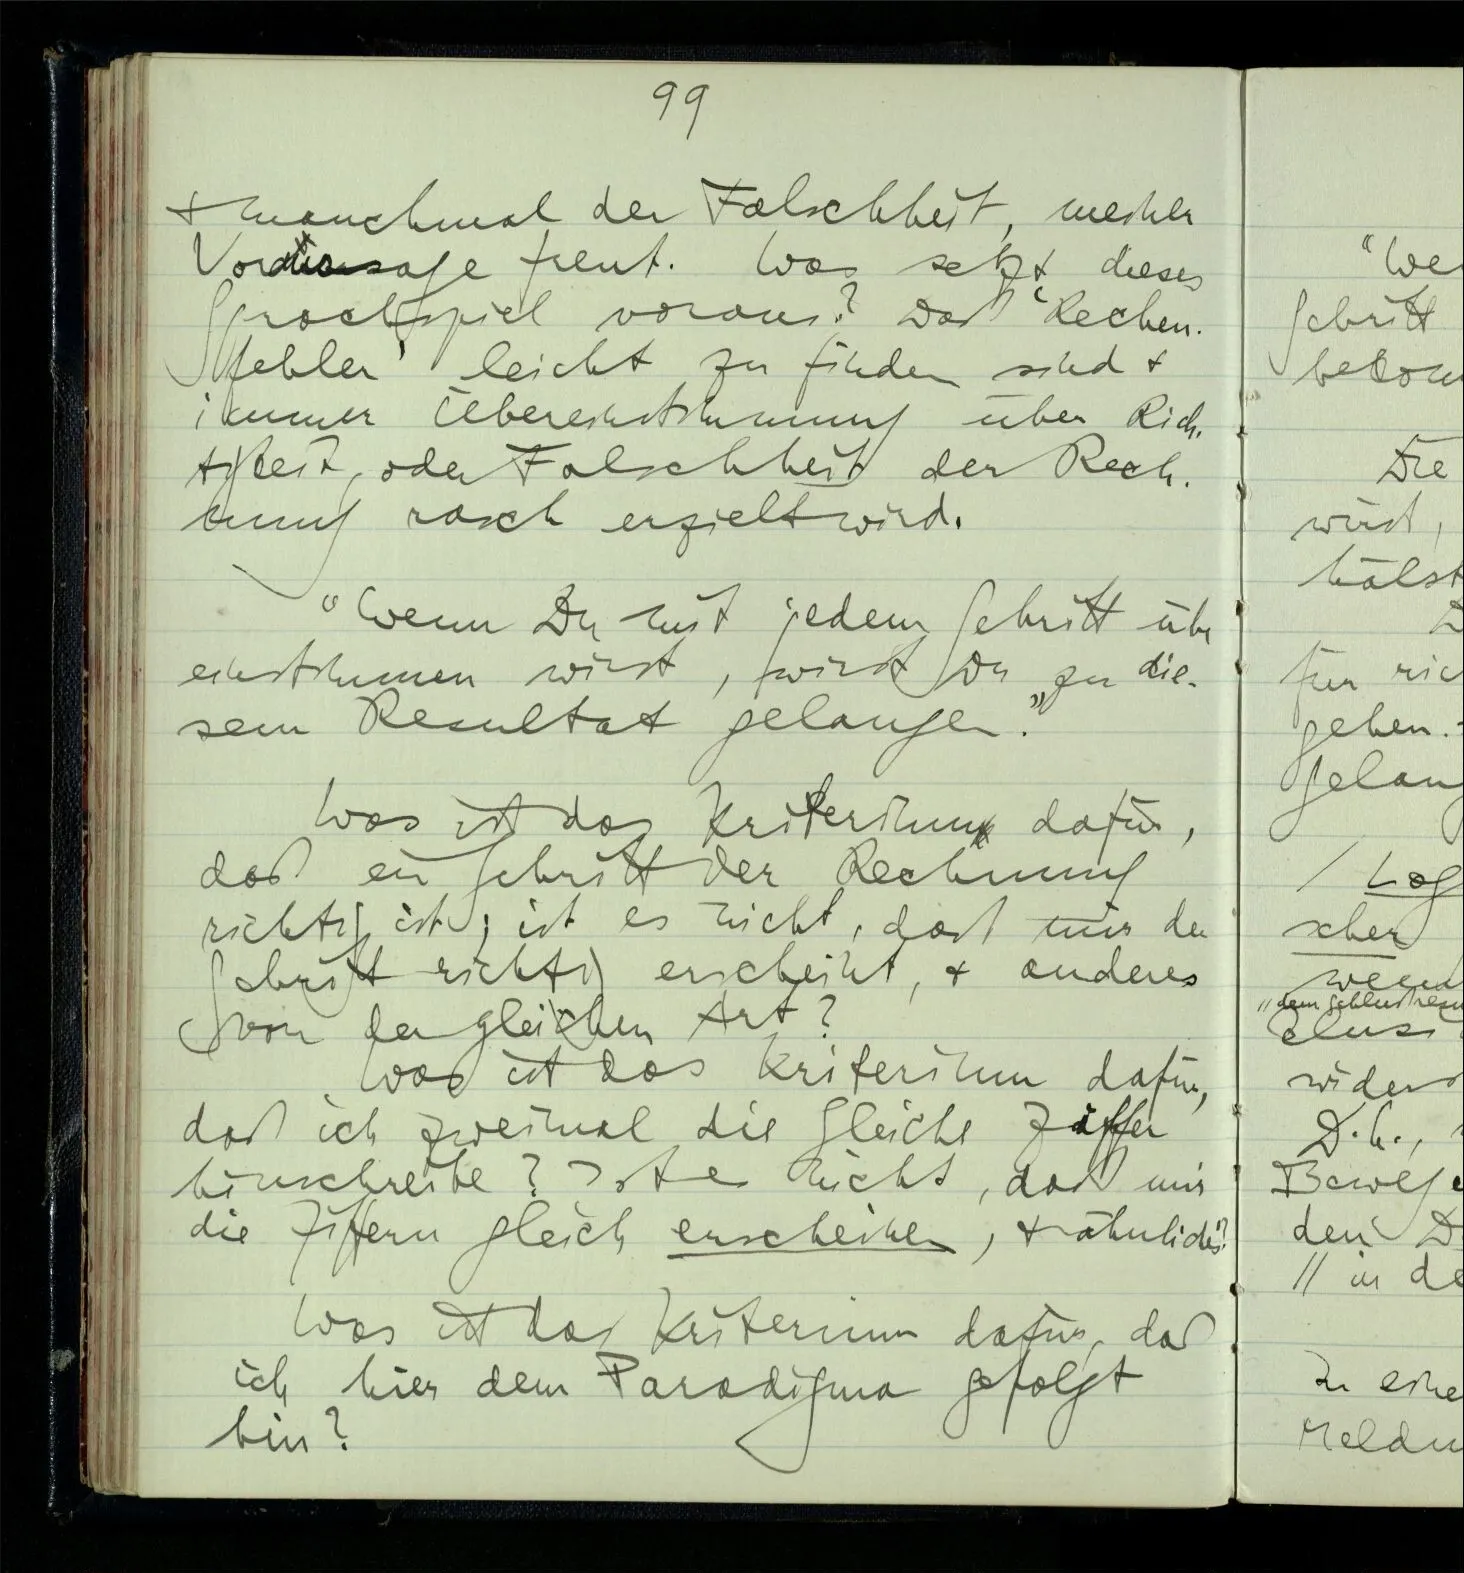 99
+ manchmal der Falschheit, meiner
Voraussage freut. Was setzt dieses
Sprachspiel voraus? Daß ‘Rechen-
fehler’ leicht zu finden sind +
immer Übereinstimmung über Rich-
tigkeit, oder Falschheit der Rech-
nung rasch erzielt wird.
“Wenn Du mit jedem Schritt über
einstimmen wirst, wirst Du zu die-
sem Resultat gelangen.”
Was ist das Kriterium dafür,
daß ein Schritt der Rechnung
richtig ist; ist es nicht, daß mir der
Schritt richtig erscheint, + anderes
von der gleichen Art?
Was ist das Kriterium dafür,
daß ich zweimal die gleiche Ziffer
hinschreibe? Ist es nicht, daß mir
die Ziffern gleich erscheinen, + ähnliches?
Was ist das Kriterium dafür, daß
ich hier dem Paradigma gefolgt
bin?
“We
Schritt
bekom
Die
wirst,
hälst
D
für ric
gehen.
gelang
/ Log
scher
wenn
“dem Schluß
wider
D.h.,
Bewege
den D
// in de
Zu eine
Meldu